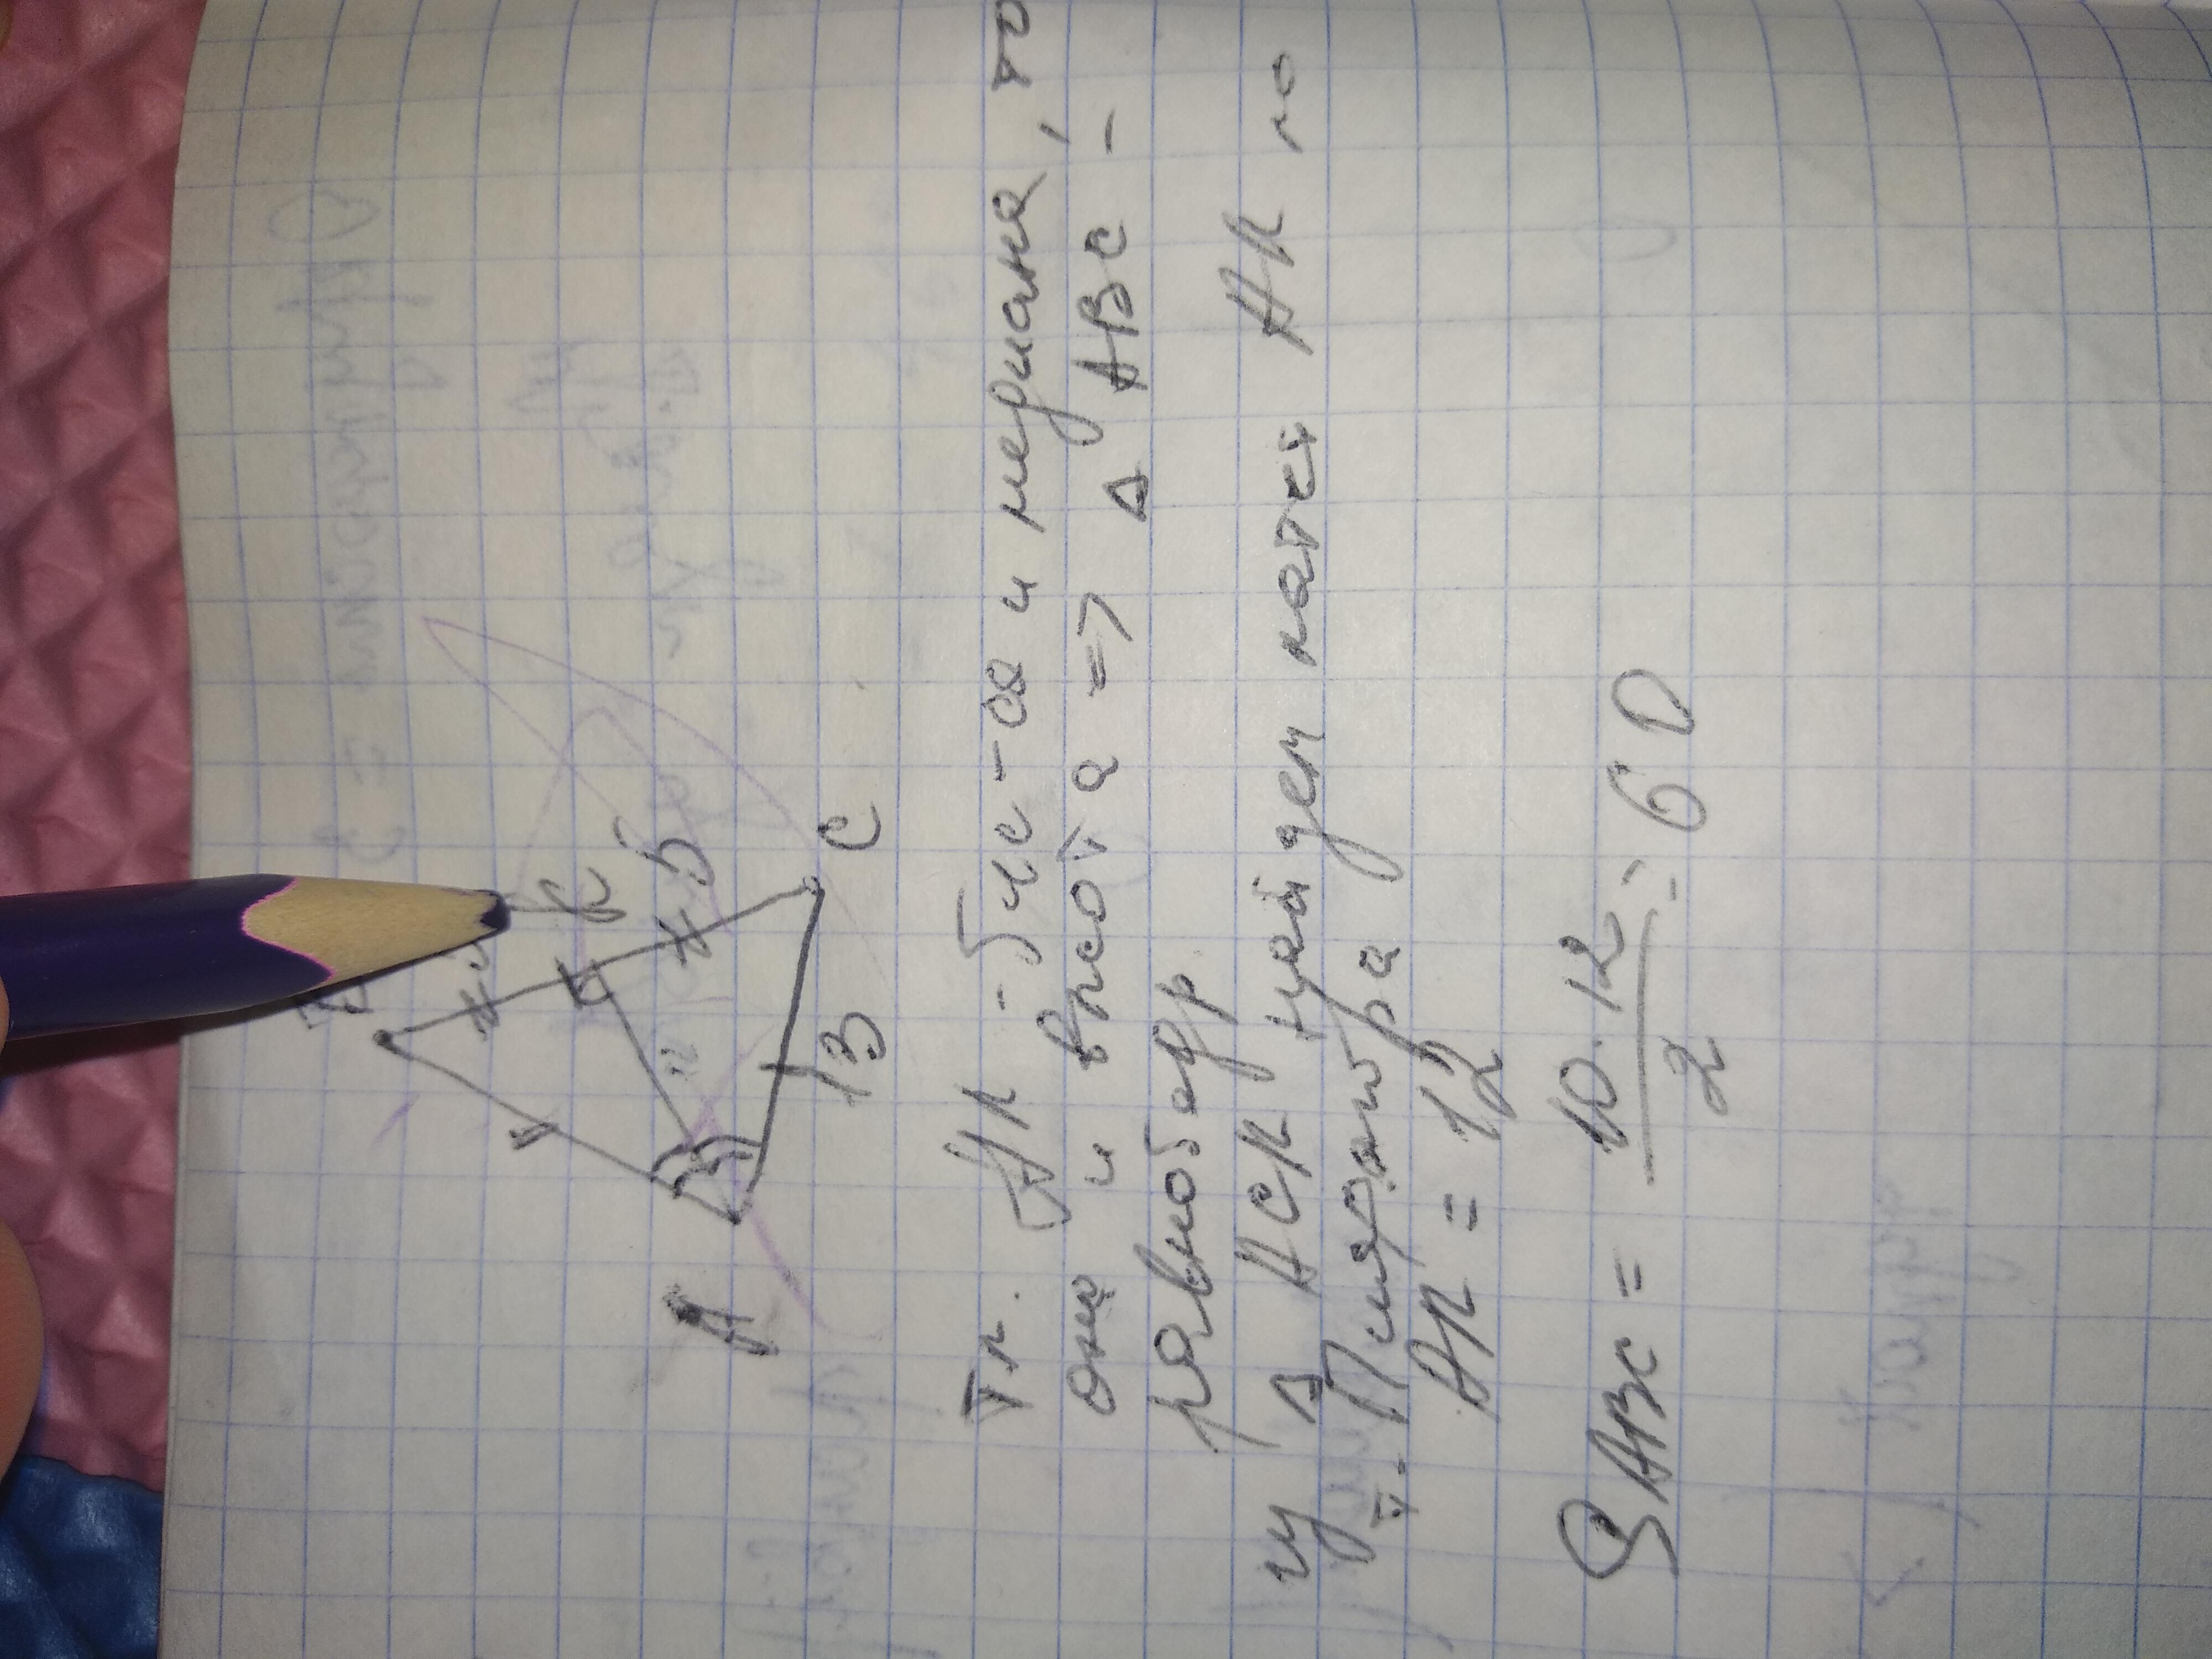 A
K
5
12
13
C
Т.к. АК - бис-са и медиана, то
она и высота => Δ ABC -
равнобедр.
из Δ АСК найдем катет АК по
т. Пифагора
АК = 12
SABC = 10·12 / 2 = 60